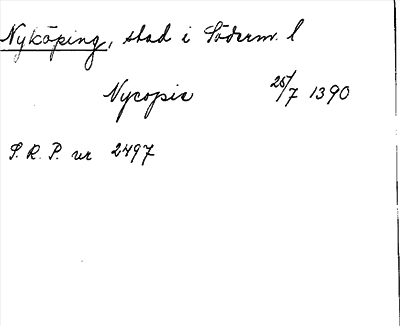 Nyköping, stad i Söderm. l
Nycopie 25/7 1390
S.R.P. nr 2497